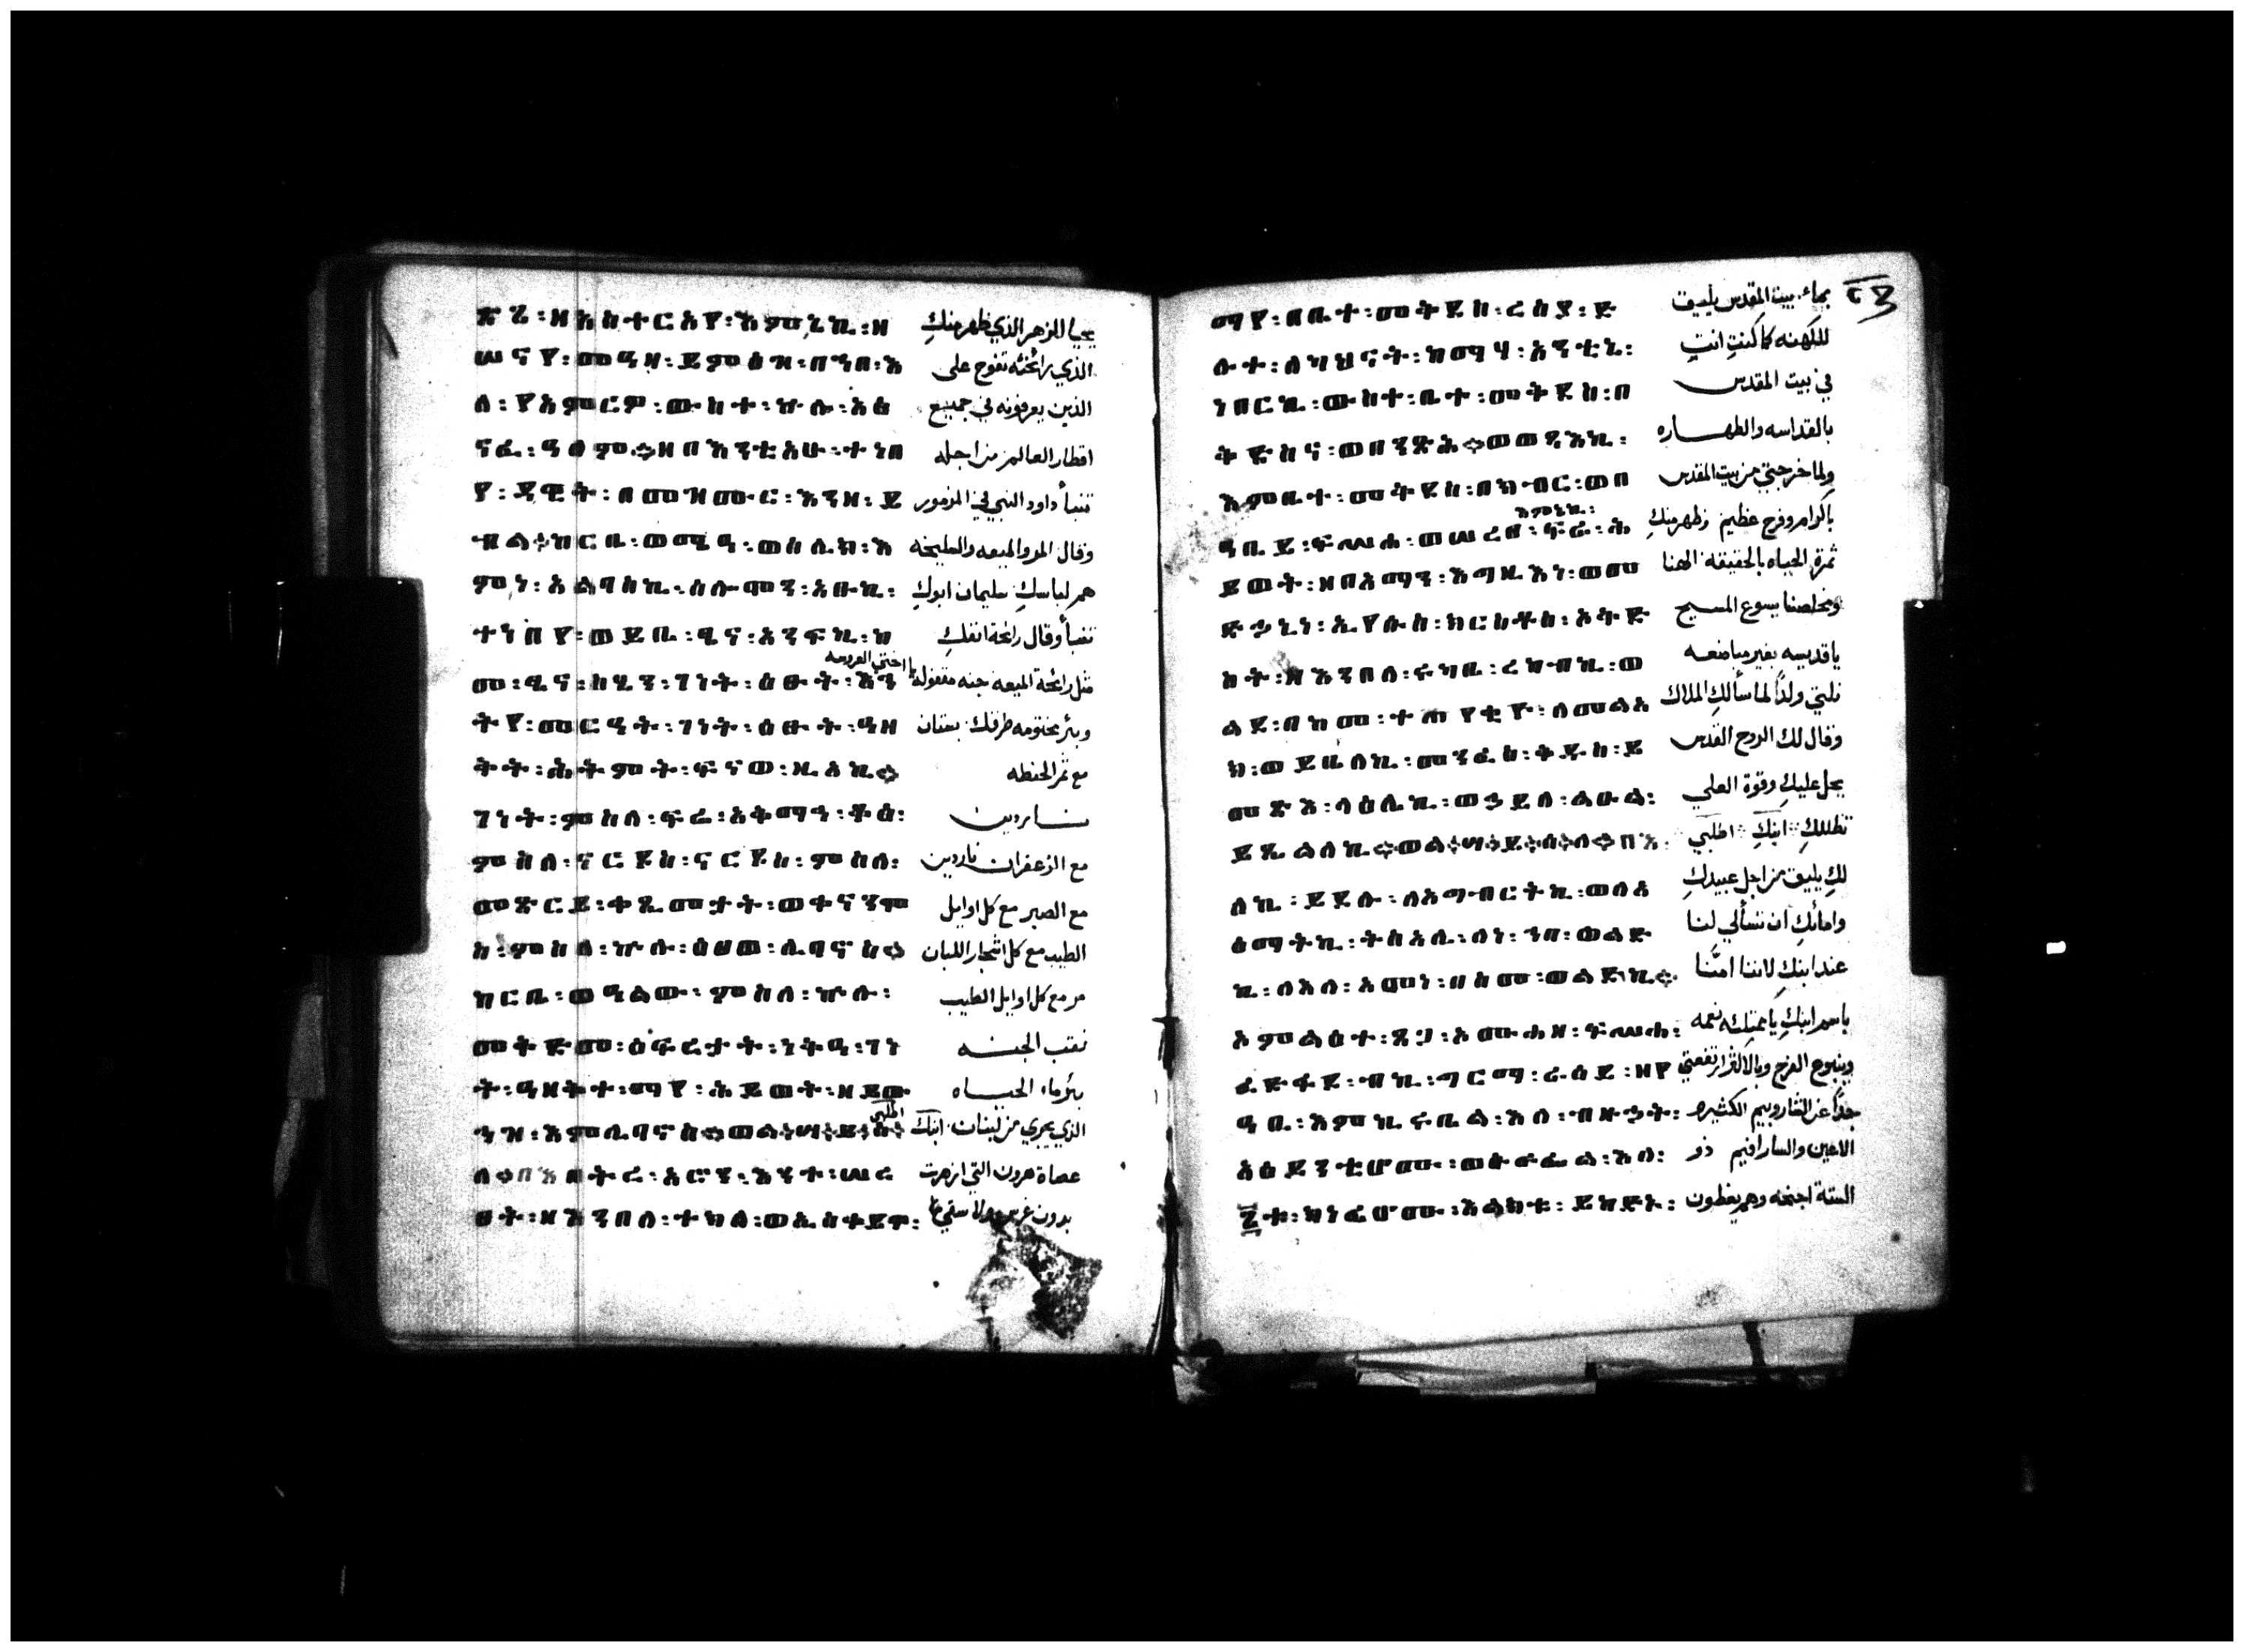 ጽጌ፡ዘአስተርአየ፡እምኔኪ፡ዘ يحيا للزهر الذي ظهر منكِ
ሠናየ፡መዓዛ፡ይምዕዝ፡በኀበ፡እ الذي رائحته تفوح على
ለ፡የአምርዎ፡ውስተ፡ኵሉ፡አፅ الذين يعرفونه في جميع
ናፈ፡ዓለም።ዘበእንቲአሁ፡ተነበ اقطار العالم من اجله
የ፡ዳዊት፡በመዝሙር፡እንዘ፡ይ تنبأ داود النبي في المزمور
ብል፡ከርቤ፡ወሜዓ፡ወስሊክ፡እ وقال المر والميعه والسليخه
ምነ፡አልባስኪ፡ሰሎሞን፡አቡኪ፡ هم لباسكِ سليمان ابوكِ
ተነበየ፡ወይቤ፡ጼና፡አንፍኪ፡ከ تنبأ وقال رائحة انفكِ
መ፡ጼና፡ስሂን፡ገነት፡ዕፁት፡እኅ مثل رائحة الميعه جنه مقفوله يا اختي العروسه
ትየ፡መርዓት፡ገነት፡ዕፁት፡ዓዘ وبئر مختومه طرقك بستان
ቅት፡ሕትምት፡ፍናወ፡ዚአኪ። مع ثمر الحنطه
ገነት፡ምስለ፡ፍሬ፡አቅማሕ፡ቆዕ፡ ناردين
ምስለ፡ናርዶስ፡ናርዶስ፡ምስለ፡ مع الزعفران ناردين
መጽርይ፡ቀጺመታት፡ወቀናንሞ مع الصبر مع كل اوايل
ስ፡ምስለ፡ኵሉ፡ዕፀወ፡ሊባኖስ። الطيب مع كل اشجار اللبان
ከርቤ፡ወዓልው፡ምስለ፡ኵሉ፡ مر مع كل اوايل الطيب
መቅድመ፡ዕፍረታት፡ነቅዓ፡ገነ نقب الجنه
ት፡ዓዘቅተ፡ማየ፡ሕይወት፡ዘይው بئر ماء الحياه
ኅዝ፡እምሊባኖስ። الذي يجري من لبنان ابنك اطلبي
በትረ፡አሮን፡እንተ፡ሠረ عصاة هرون التي ازهرت
ፀት፡ዘእንበለ፡ተከለ፡ወኢሰቀይዋ፡ بدون غرس ولا سقي
ማየ፡በቤተ፡መቅደስ፡ረሰያ፡ይ بماء بيت المقدس يليق
ሉተ፡ለካህናት፡ከማሃ፡አንቲኒ፡ للكهنه كما كنتِ انتِ
ነበርኪ፡ውስተ፡ቤተ፡መቅደስ፡በ في بيت المقدس
ቅድስና፡ወበንጽሕ።ወወፂአኪ፡ بالقداسه والطهاره
እምቤተ፡መቅደስ፡በክብር፡ወበ ولما خرجتي من بيت المقدس
ዓቢይ፡ፍሥሓ፡ወሠረፀ፡ፍሬ፡ሕ እምኔኪ፡ باكرام وفرح عظيم ظهر منكِ
ይወት፡ዘበአማን፡እግዚእነ፡ወመ ثمرة الحياه بالحقيقه الهنا
ድኃኒነ፡ኢየሱስ፡ክርስቶስ፡ኦቅድ ومخلصنا يسوع المسيح
ስት፡ዘእንበለ፡ሩካቤ፡ረከብኪ፡ወ يا قديسه بغير مباضعه
ልደ፡በከመ፡ተጠየቂዮ፡ለመልአ نلتي ولداً لما سألكِ الملاك
ክ፡ወይቤለኪ፡መንፈስ፡ቅዱስ፡ይ وقال لك الروح القدس
መጽእ፡ላዕሌኪ፡ወኃይለ፡ልዑል፡ يحل عليكِ وقوة العلي
ይጼልለኪ። تظللكِ ابنكِ اطلبي
ለኪ፡ይደሉ፡ለአግብርትኪ፡ወለአ لكِ يليق من اجل عبيدكِ
ዕማትኪ፡ትስአሊ፡ለነ፡ኀበ፡ወልድ وامائكِ ان تسألي لنا
ኪ፡ለእለ፡አመነ፡በስመ፡ወልድኪ። عند ابنكِ لاننا امنّا
باسم ابنكِ يا ممتلئه نعمه
وينبوع الفرح
ዓቢ፡እምኪሩቤል፡እለ፡ብዙኃት፡ جداً عن الشاروبيم الكثيره
አዕይንቲሆሙ፡ወሱራፌል፡እለ፡ الاعين والسارافيم ذو
፮ቱ፡ክነፊሆሙ፡እልክቱ፡ይከድኑ፡ الستة اجنحه وهم يغطون